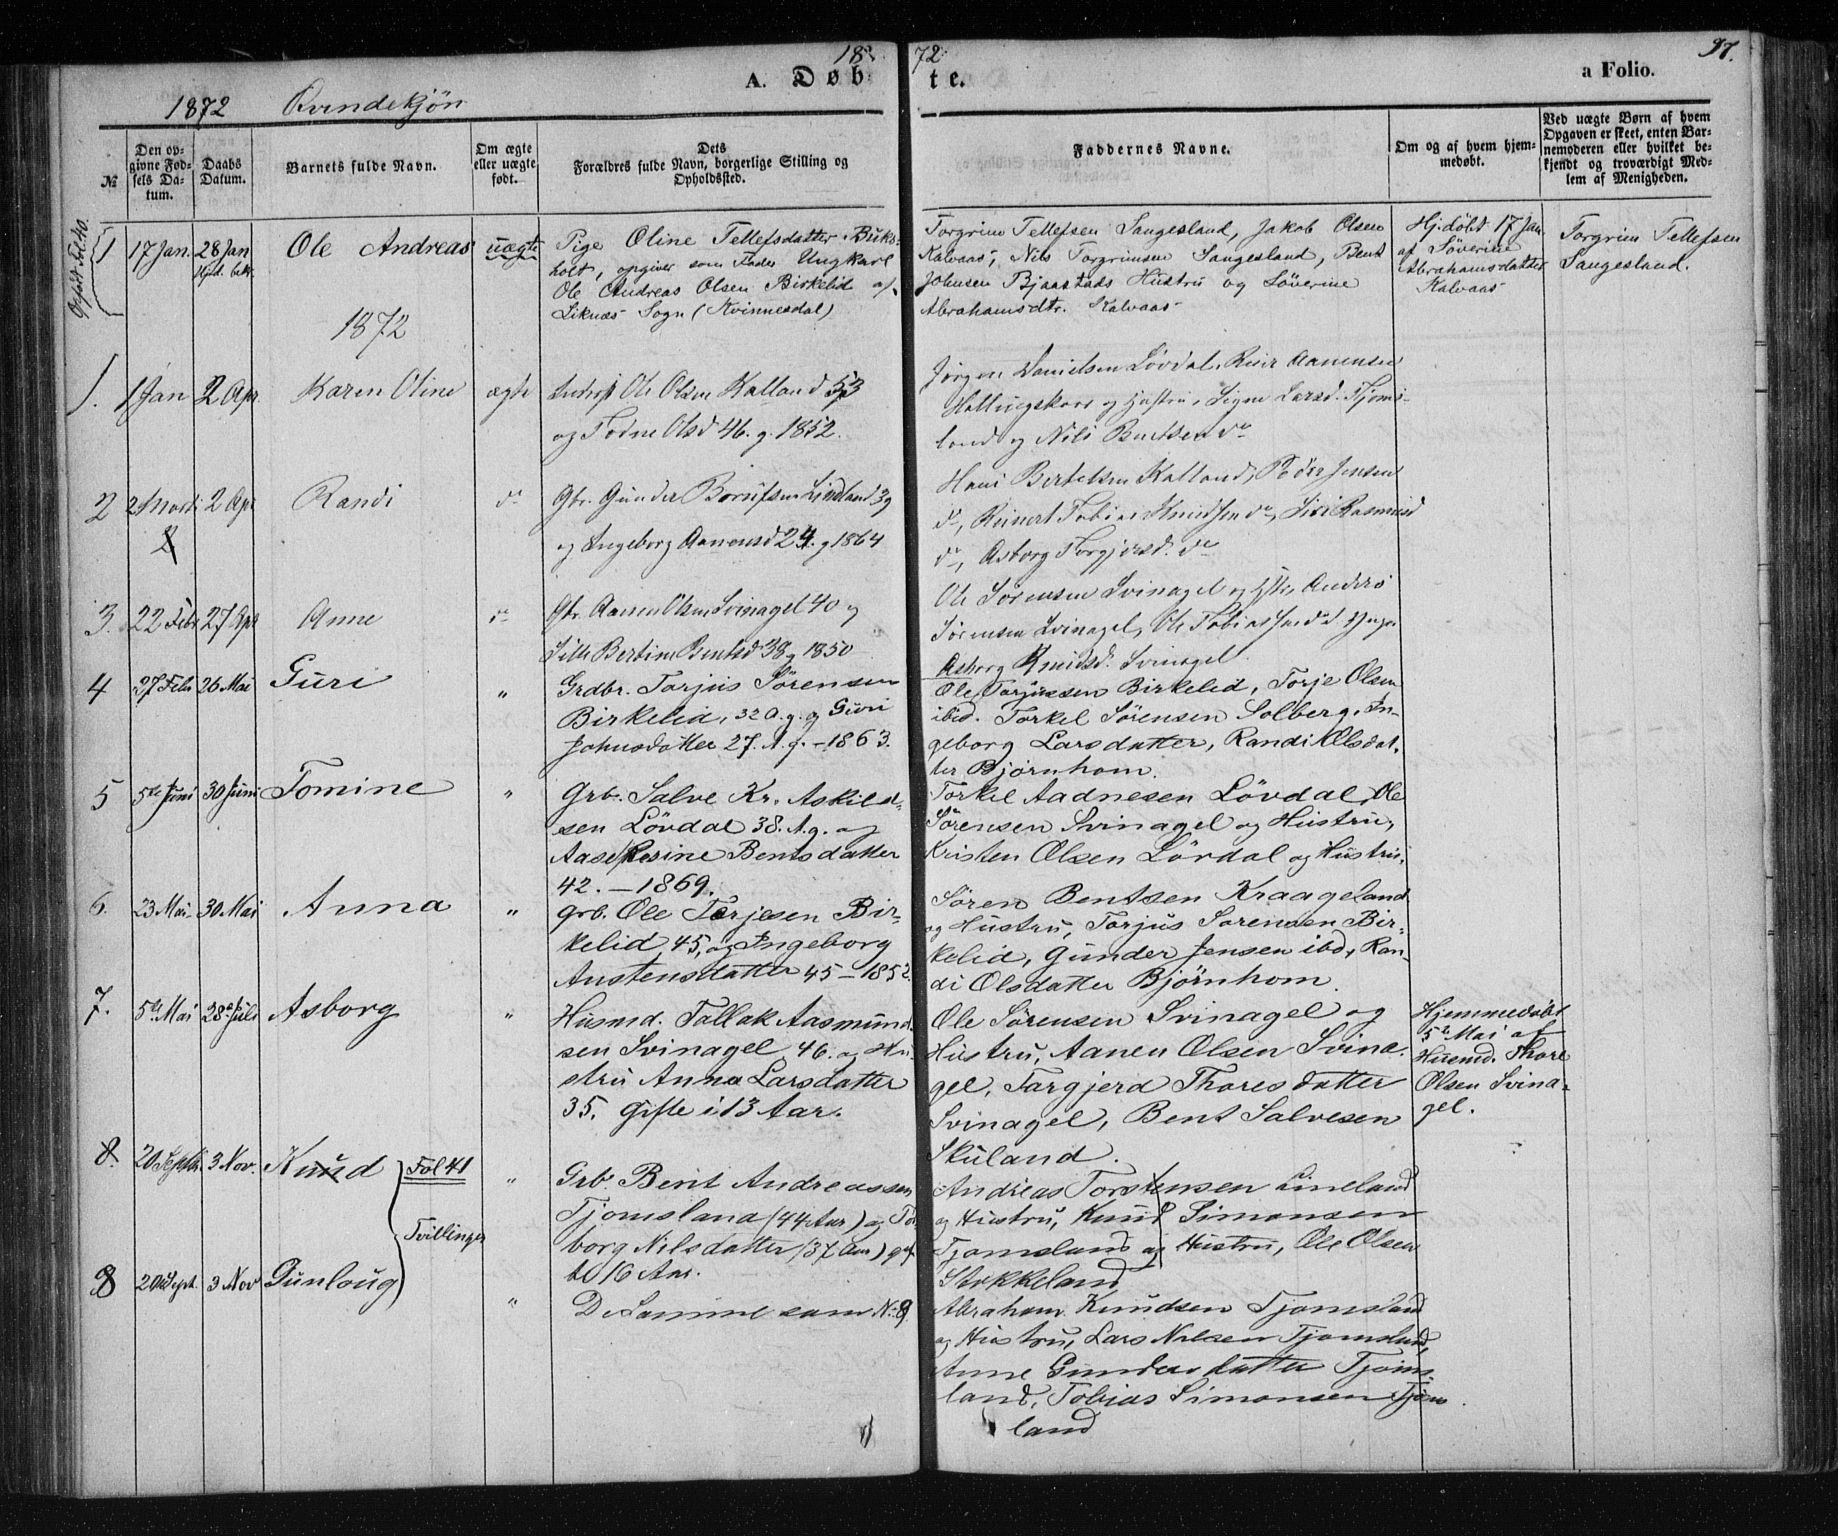 18
72
97.
A. Døb
te.
a Folio.
1872 Kvindekjøn
№
Den opgivne Fødsels Datum.
Daabs Datum.
Barnets fulde Navn.
Om ægte eller uægte født.
Dets Forældres fulde Navn, borgerlige Stilling og Opholdssted.
Faddernes Navne.
Om og af hvem hjemmedøbt.
Ved uægte Børn af hvem Opgaven er skeet, enten Barnemoderen eller hvilket bekjendt og troværdigt Medlem af Menigheden.
Opført Fol. 40.
1 17 Jan. 28 Jan Hjd. bek. Ole Andreas uægte
Pige Oline Tellefsdatter Buks-
holt, opgiver som Fader Ungkarl
Ole Andreas Olsen Birkelid af
Liknæs Sogn (Kvinnesdal)
Torgrim Tellefsen Saugesland, Jakob Olsen
Kalvaas, Nils Torgrimsen Saugesland, Bent
Johnsen Bjaastads Hustru og Söverine
Abrahamsdtr. Kalvaas
Hj.döbt 17 Jan.
af Söverine
Abrahamsdatter
Kalvaas
Torgrim Tellefsen
Saugesland.
1872
1. 1 Jan 2 Apr. Karen Oline ægte
Inderst Ole Olsen Kalland 53
og Todne Olsd 46. g. 1852.
Jörgen Danielsen Lövdal, Reier Aanensen
Hallingskaar og Hustru, Signe Larsd. Tjoms-
land og Nils Bentsen do
2 2 Marts 2 Apr Randi do
Gbr. Gunder Borufsen Lindland 39
og Ingeborg Aanensd 24. g 1864
Hans Bertelsen Kalland, Peder Jensen
do, Reinert Tobias Knudsen do, Siri Rasmusd
do, Asborg Torgjersd. do
3. 22 Febr 27 Apr Anne do
Gbr. Aanen Olsen Svinagel 40 og
Sille Bertine Bentsd 38 g 1850
Ole Sörensen Svinagel og Hstr, Anders
Sörensen Svinagel, Ole Tobias
Asborg Knudsd. Svinagel.
4 27 Febr 26 Mai Guri "
Grdbr. Torjus Sörensen
Birkelid, 32 A. g. og Guri
Johnsdatter 27. A. g. - 1863.
Ole Torjussen Birkelid, Torje Olsen
ibid. Torkel Sörensen Solberg, In-
geborg Larsdatter, Randi Olsdat-
ter Björnhom.
5 5te Juni 30 Juni Tomine "
Grb. Salve Kr. Askild-
sen Lövdal 38. A. g. og
Aase Resine Bentsdatter
42. - 1869.
Torkel Aadnesen Lövdal, Ole
Sörensen Svinagel og Hustru,
Kristen Olsen Lövdal og Hustru.
6. 23 Mai 30 Mai Anna "
Grb. Ole Torjesen Bir-
kelid 45, og Ingeborg
Austensdatter 45 - 1852.
Sören Bentsen Kraageland
og Hustru, Torjus Sorensen Bir-
kelid, Gunder Jensen ibd, Ran-
di Olsdatter Björnhom.
7. 5te Mai 28de Juli Asborg "
Husmd. Tallak Aasmund-
sen Svinagel 46. og Hu-
stru Anna Larsdatter
35. Gifte i 13 Aar.
Ole Sörensen Svinagel og
Hustru, Aanen Olsen Svina-
gel, Targjerd Thoresdatter
Svinagel, Bent Salvesen
Skuland.
Hjemmedöbt
5te Mai af
Husmd. Thore
Olsen Svina-
gel.
8. 20 Septb. 3 Nov. Knud Fol 41 "
Tvillinger
Grb Bent Andreassen
Tjomsland (44 Aar) og Tor
borg Nilsdatter (37 Aar) gif
te 16 Aar.
Andreas Torstensen Lineland
og Hustru, Knud Simonsen
Tjomsland og Hustru, Ole Olsen
Stokkeland
8 20 Sept. 3 Nov Gunloug "
De Samme som No 8
Abraham Knudsen Tjomsland
og Hustru, Lars Nilsen Tjomsland,
Anne Gundersdatter Tjoms-
land, Tobias Simonsen Tjoms
land